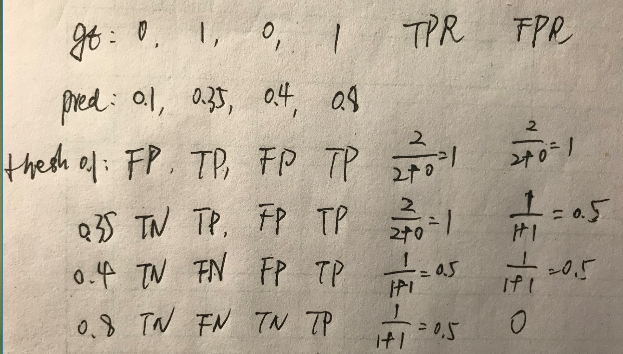 gt: 0, 1, 0, 1 TPR FPR
pred: 0.1, 0.35, 0.4, 0.8
thresh 0.1: FP, TP, FP TP 2/(2+0)=1 2/(2+0)=1
0.35 TN TP, FP TP 2/(2+0)=1 1/(1+1)=0.5
0.4 TN FN FP TP 1/(1+1)=0.5 1/(1+1)=0.5
0.8 TN FN TN TP 1/(1+1)=0.5 0